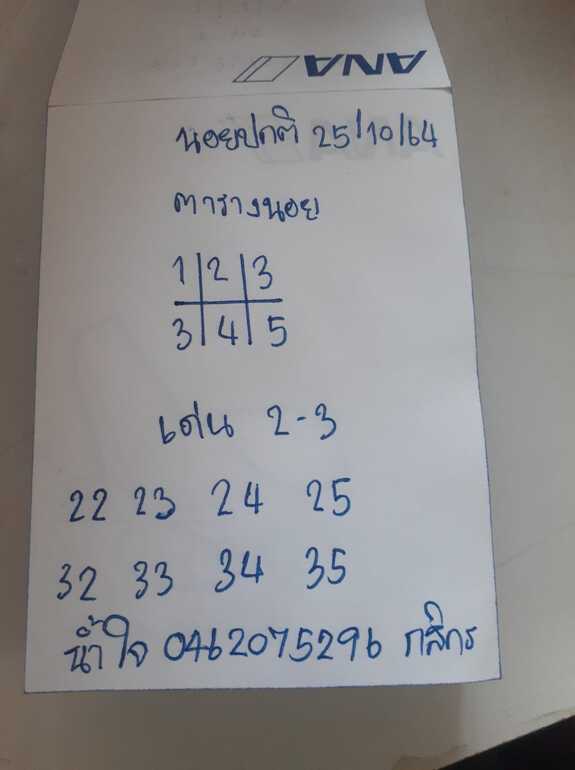 ANA
นอยปกติ 25/10/64
ตารางนอย
1 2 3
3 4 5
เด่น 2-3
22 23 24 25
32 33 34 35
น้ำใจ 0462075296 กสิกร